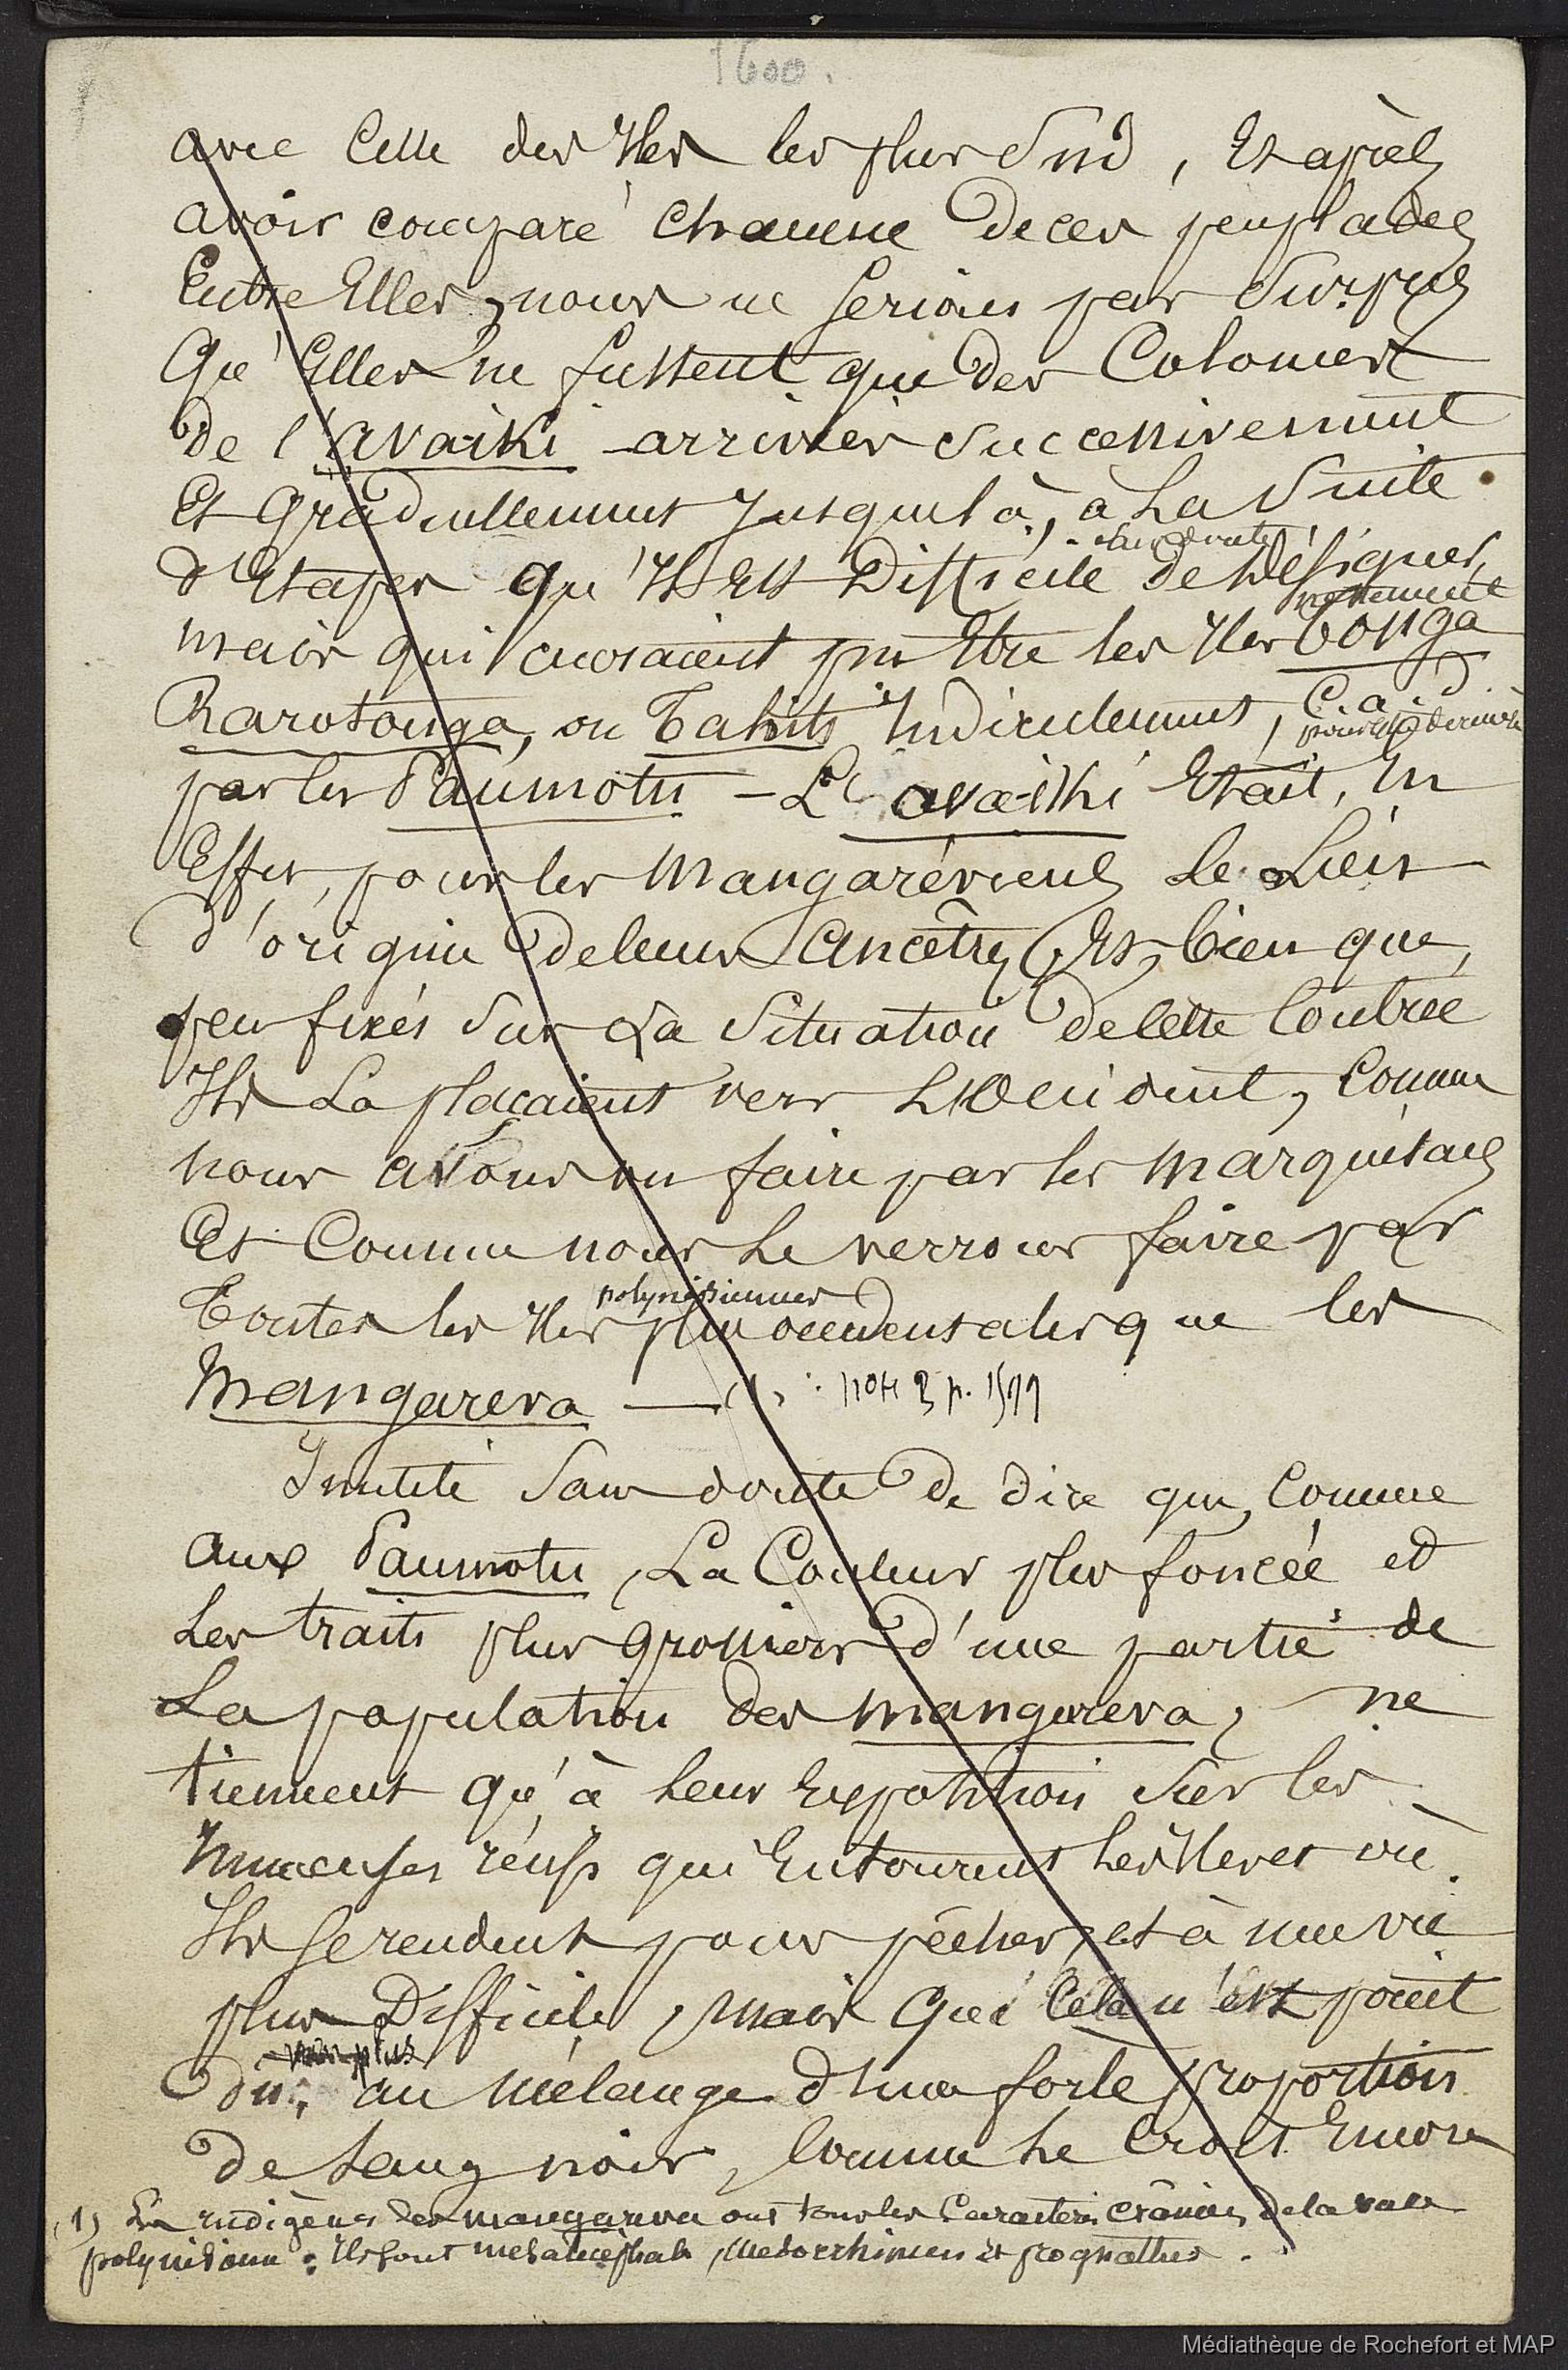 1600.
avec celle des Iles les plus Sud, Et après
avoir comparé chacune de ces peuplades
Entre Elles, nous ne serions pas surpris
Qu'Elles ne fussent que des Colonies
de l'avaïki arrivées successivement
Et Graduellement jusque là, à la suite
sans doute
d'Etapes qu'Il Est Difficile de désigner
nettement
mais qui auraient pu Etre les Iles Tonga
Rarotonga, ou Tahiti Indirectement, C. a. d.
pour cette dernière
par les Paumotu – L'avaïki Etait, En
Effet, pour les Mangaréviens le Lieu
d'origine de leurs ancêtres, Et, bien que,
peu fixés sur La situation de cette Contrée
Ils La plaçaient vers l'Occident, Comme
nous avons vu faire par les Marquésans
Et Comme nous le verrons faire par
polynésiennes
Toutes les Iles plus occidentales que les
Mangareva — (1) : note 2 p. 1599
Inutile sans doute de dire que, Comme
aux Paumotu, La Couleur plus foncée et
Les traits plus grossiers d'une partie de
La population des Mangareva, ne
tiennent qu'à leur Exposition sur les
Immenses récifs qui Entourent les Iles et où
Ils se rendent pour pêcher, et à une vie
plus Difficile, mais que cela n'est point
non plus
dû, au mélange d'une forte proportion
de sang noir, Comme le croit Encore
(1) Les indigènes des mangareva ont tous les Caractères crâniens de la race
polynésienne : Ils sont mésaticéphales, mésorrhiniens et prognathes.
Médiathèque de Rochefort et MAP